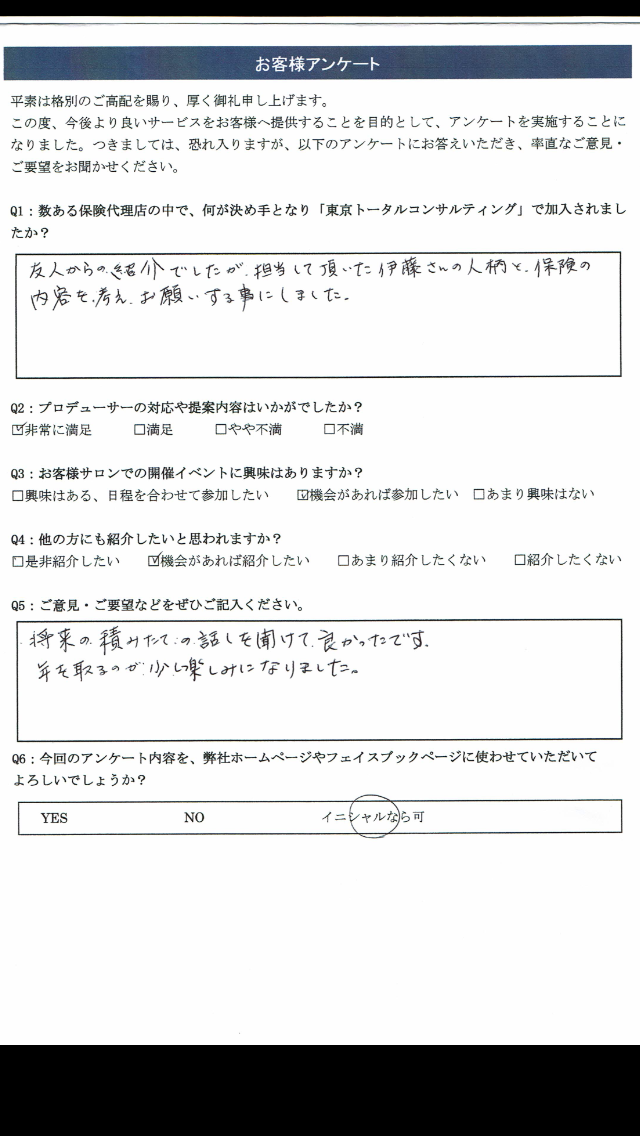 お客様アンケート
平素は格別のご高配を賜り、厚く御礼申し上げます。
この度、今後より良いサービスをお客様へ提供することを目的として、アンケートを実施することに
なりました。つきましては、恐れ入りますが、以下のアンケートにお答えいただき、率直なご意見・
ご要望をお聞かせください。
Q1：数ある保険代理店の中で、何が決め手となり「東京トータルコンサルティング」で加入されまし
たか？
友人からの紹介でしたが、担当して頂いた伊藤さんの人柄と、保険の
内容を考え、お願いする事にしました。
Q2：プロデューサーの対応や提案内容はいかがでしたか？
☑非常に満足 □満足 □やや不満 □不満
Q3：お客様サロンでの開催イベントに興味はありますか？
□興味はある、日程を合わせて参加したい ☑機会があれば参加したい □あまり興味はない
Q4：他の方にも紹介したいと思われますか？
□是非紹介したい ☑機会があれば紹介したい □あまり紹介したくない □紹介したくない
Q5：ご意見・ご要望などをぜひご記入ください。
将来の積みたての話しを聞けて良かったです。
年を取るのが少し楽しみになりました。
Q6：今回のアンケート内容を、弊社ホームページやフェイスブックページに使わせていただいて
よろしいでしょうか？
YES NO イニシャルなら可